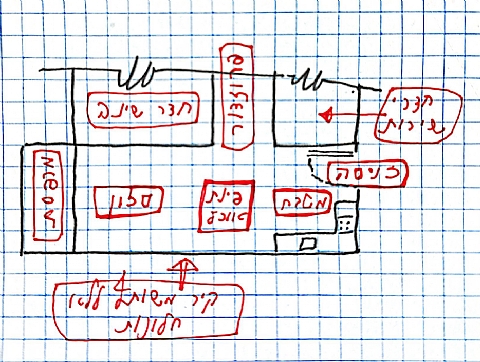 פרוזדור
חדר שינה
חדרי
שירות
כניסה
מרפסת
סלון
פינת
אוכל
מטבח
קיר משותף ללא
חלונות